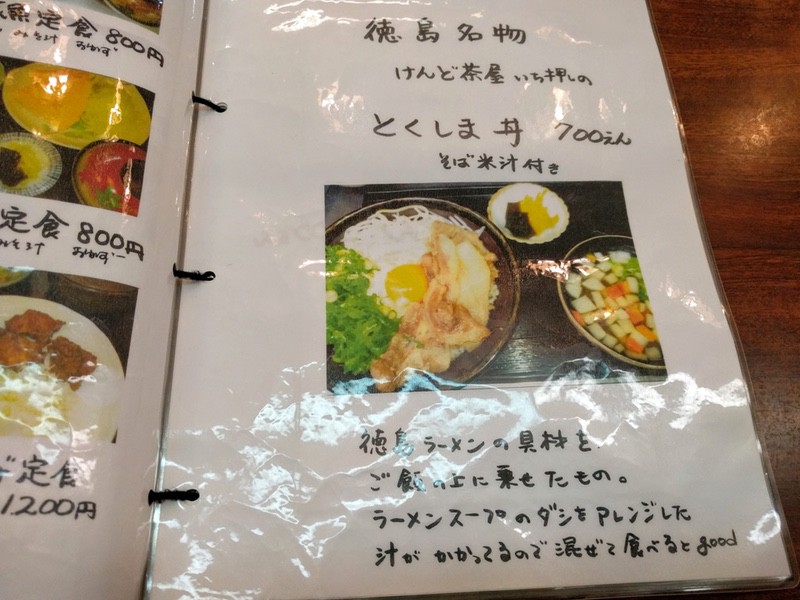 魚定食 800円
みそ汁 おかず
定食 800円
みそ汁 おかず
定食
1200円
徳島名物
けんど茶屋いち押しの
とくしま丼 700えん
そば米汁付き
徳島ラーメンの具材を
ご飯の上に乗せたもの。
ラーメンスープのダシをアレンジした
汁がかかってるので混ぜて食べるとgood